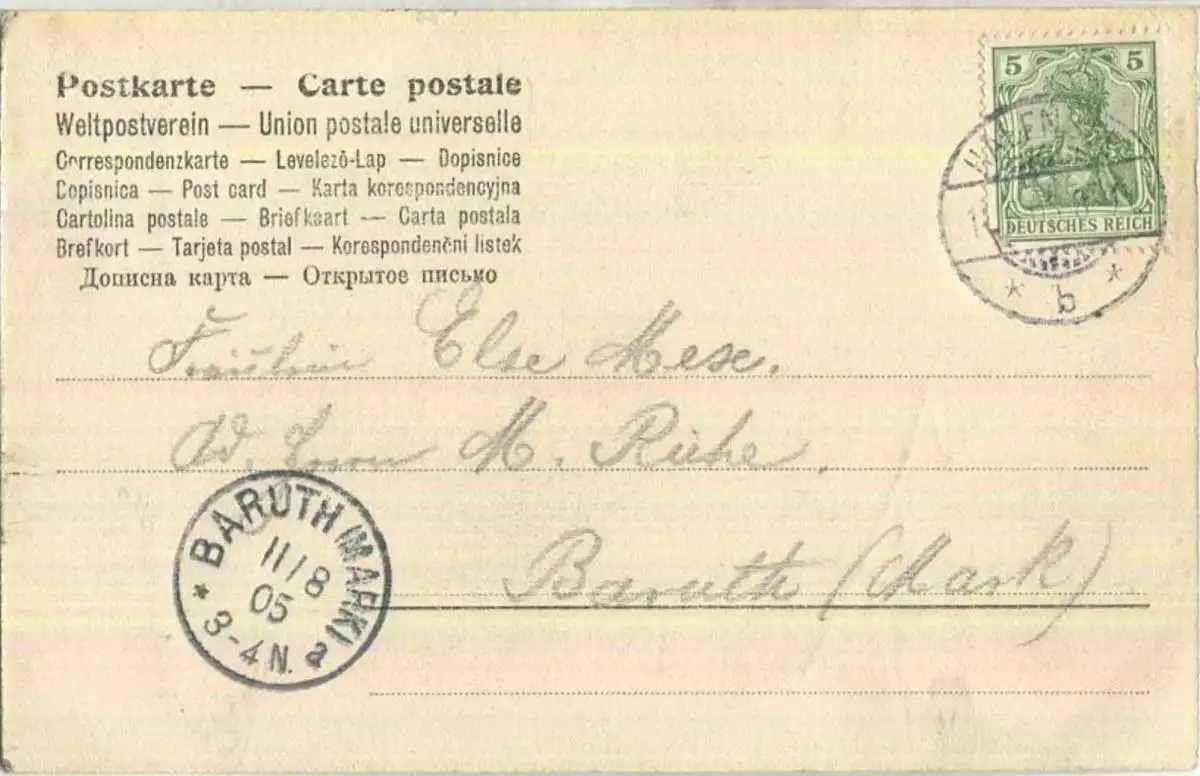 Postkarte — Carte postale
Weltpostverein — Union postale universelle
Correspondenzkarte — Levelező-Lap — Dopisnice
Dopisnica — Post card — Karta korespondencyjna
Cartolina postale — Briefkaart — Carta postala
Brefkort — Tarjeta postal — Korespondenční listek
Дописна карта — Открытое письмо
5 5
DEUTSCHES REICH
b
Fräulein Else Mese.
Ad. Herrn M. Riehe.
Baruth (Mark)
BARUTH (MARK)
11/8
05
3-4N. a